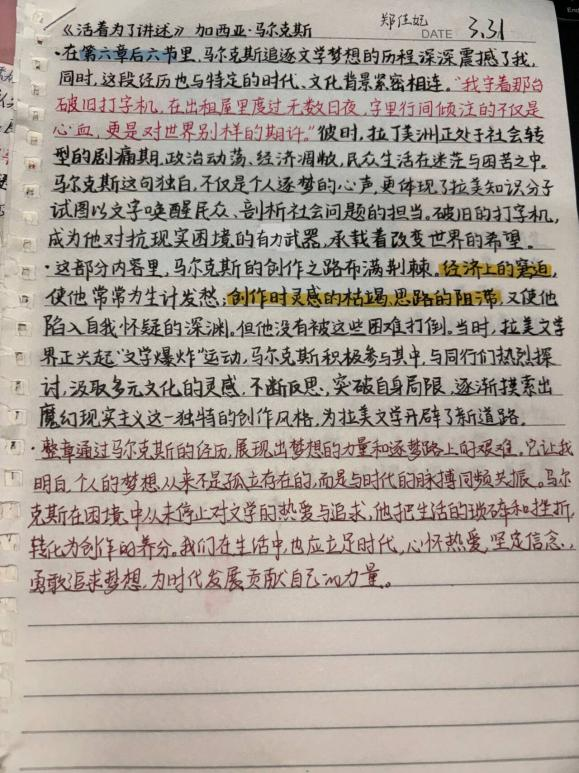 《活着为了讲述》加西亚·马尔克斯 郑佳妃 DATE 3.31
·在第六章后六节里,马尔克斯追逐文学梦想的历程深深震撼了我,
同时,这段经历也与特定的时代、文化背景紧密相连。“我守着那台
破旧打字机,在出租屋里度过无数日夜,字里行间倾注的不仅是
心血,更是对世界别样的期许。”彼时,拉丁美洲正处于社会转
型的剧痛期,政治动荡、经济凋敝,民众生活在迷茫与困苦之中。
马尔克斯这句独白,不仅是个人逐梦的心声,更体现了拉美知识分子
试图以文字唤醒民众、剖析社会问题的担当。破旧的打字机,
成为他对抗现实困境的有力武器,承载着改变世界的希望。
·这部分内容里,马尔克斯的创作之路布满荆棘。经济上的窘迫,
使他常常为生计发愁;创作时灵感的枯竭、思路的阻滞,又使他
陷入自我怀疑的深渊。但他没有被这些困难打倒。当时,拉美文学
界正兴起“文学爆炸”运动,马尔克斯积极参与其中,与同行们热烈探
讨,汲取多元文化的灵感,不断反思,突破自身局限,逐渐摸索出
魔幻现实主义这一独特的创作风格,为拉美文学开辟了新道路。
·整章通过马尔克斯的经历,展现出梦想的力量和逐梦路上的艰难,它让我
明白,个人的梦想从来不是孤立存在的,而是与时代的脉搏同频共振。马尔
克斯在困境中从未停止对文学的热爱与追求,他把生活的琐碎和挫折,
转化为创作的养分。我们在生活中,也应立足时代,心怀热爱,坚定信念,
勇敢追求梦想,为时代发展贡献自己的力量。